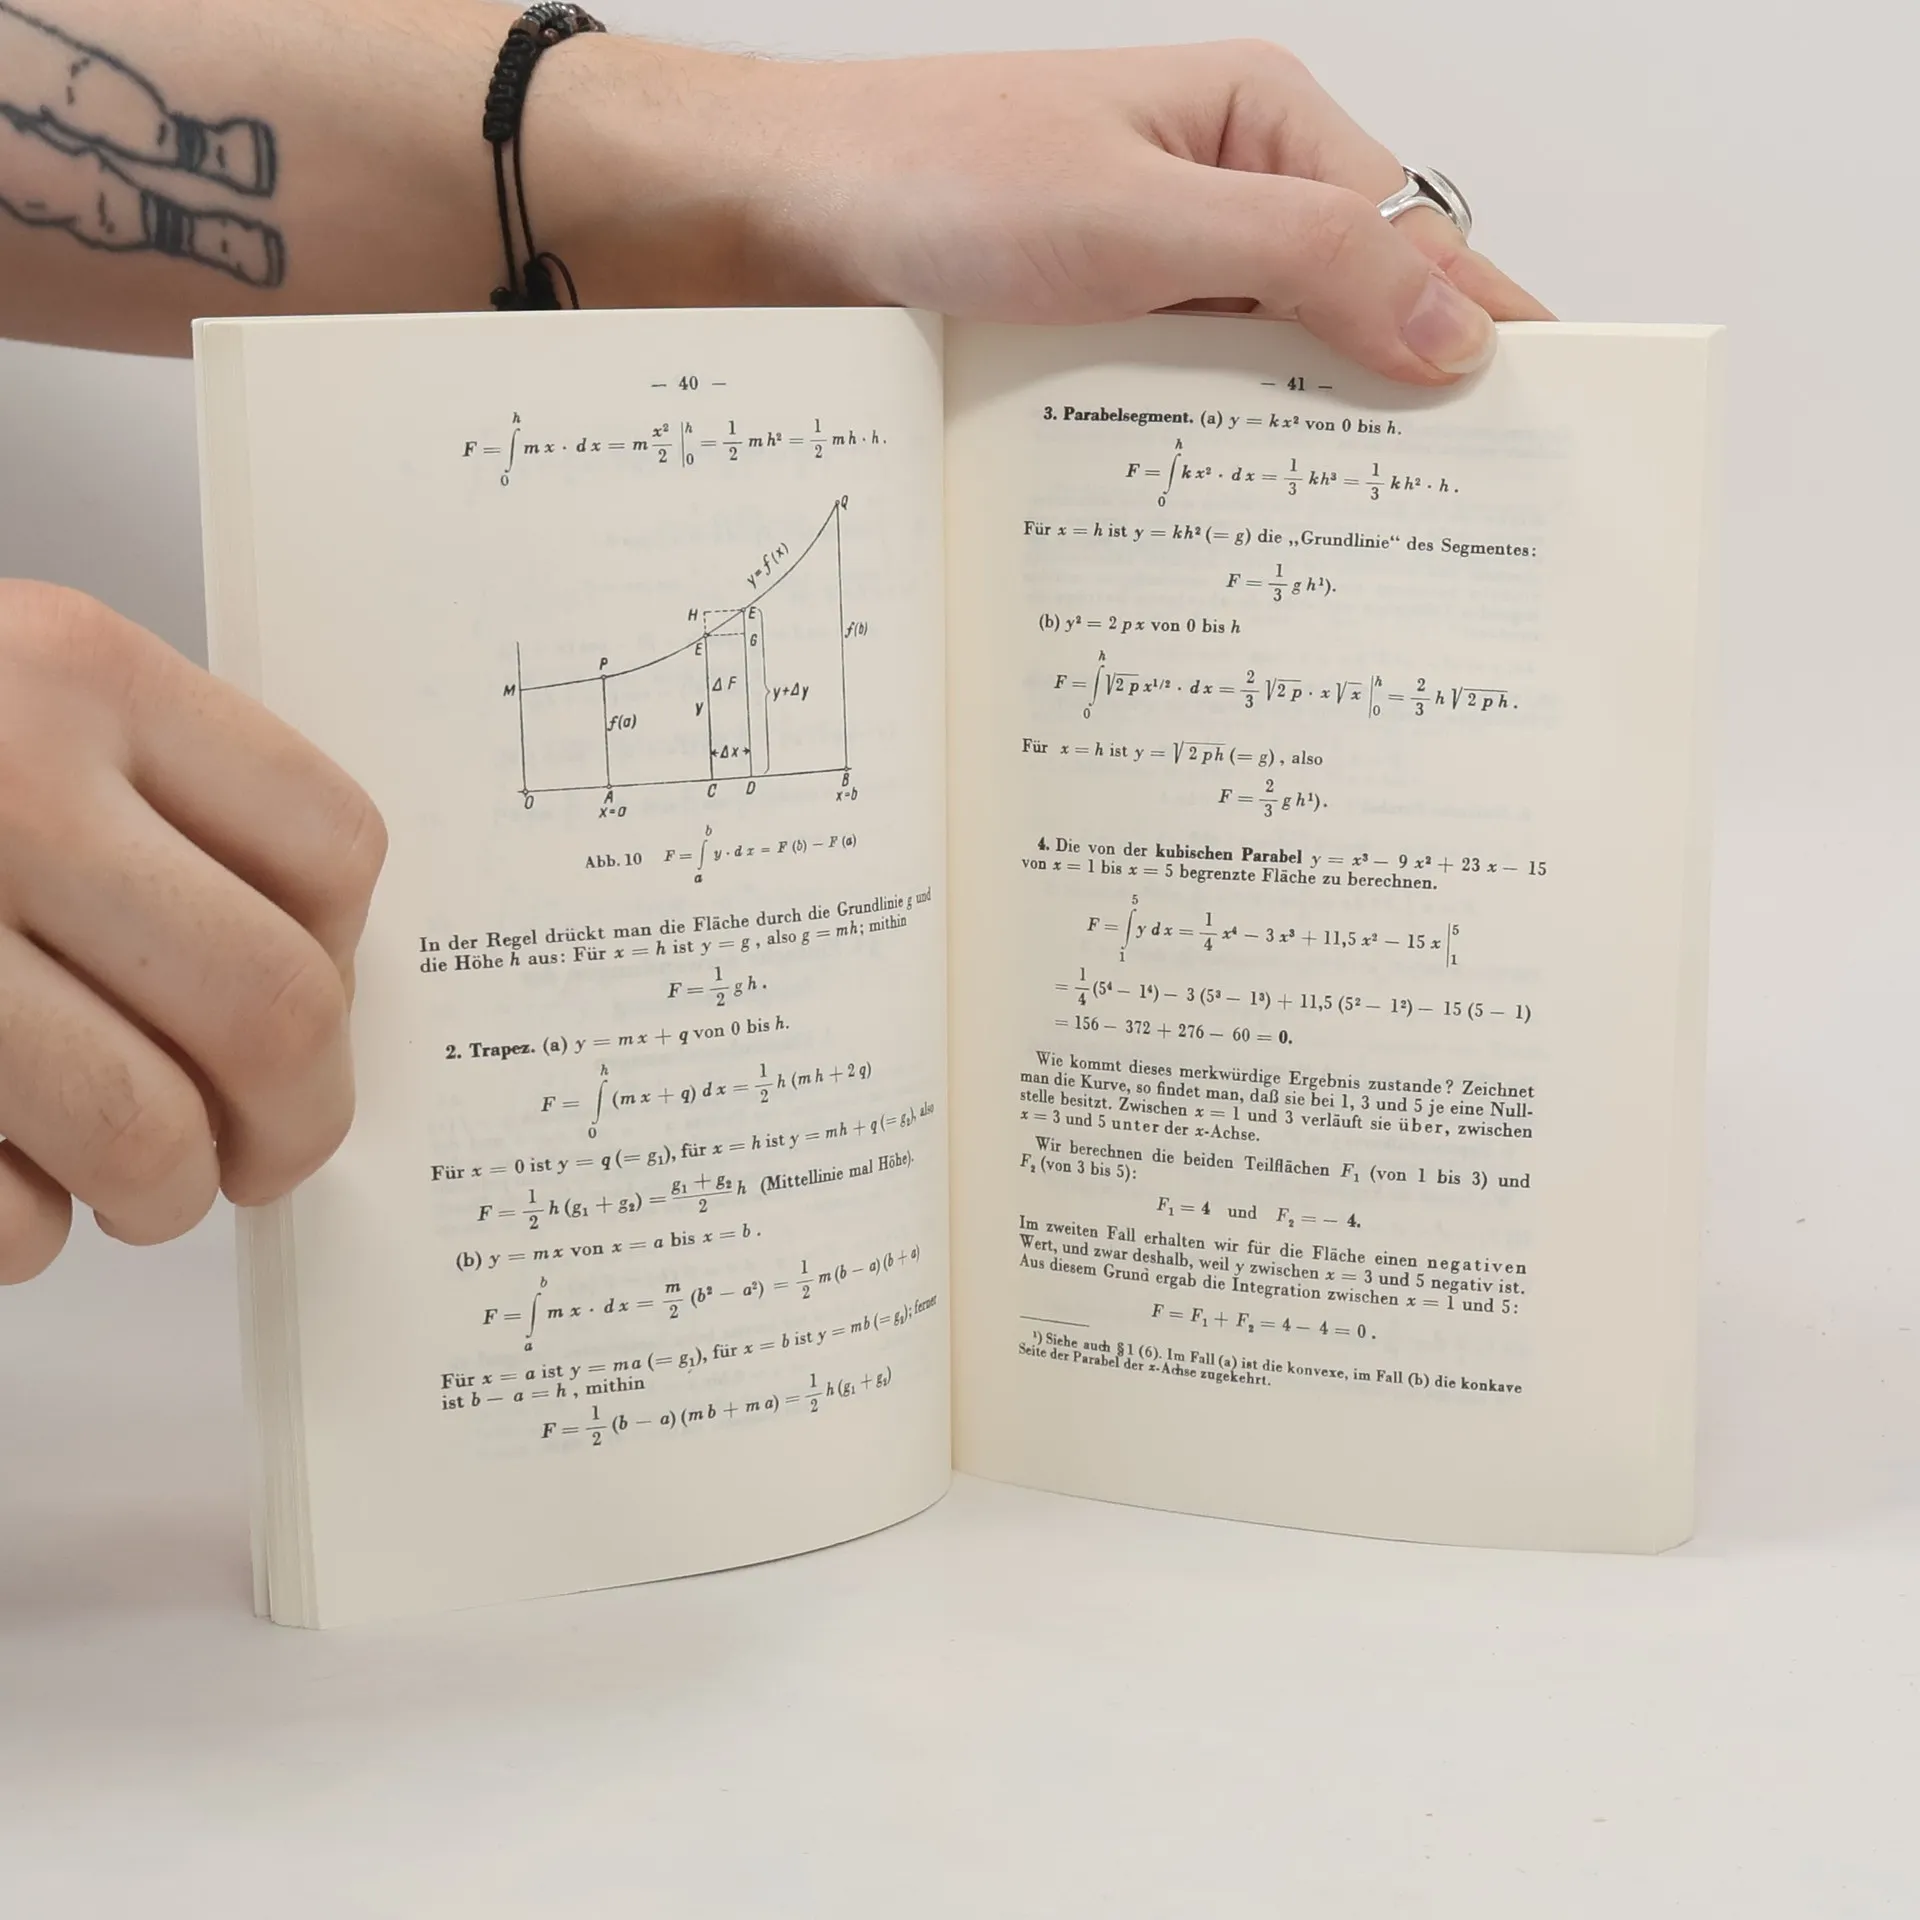 — 40 —
F = ∫₀ʰ m x · d x = m x²/2 |₀ʰ = 1/2 m h² = 1/2 m h · h.
Q
y=f(x)
H E
E G
f(b)
P
M
ΔF
y+Δy
f(a)
y
Δx
O A C D B
x=a x=b
Abb. 10 F = ∫ₐᵇ y · d x = F (b) — F (a)
In der Regel drückt man die Fläche durch die Grundlinie g und
die Höhe h aus: Für x = h ist y = g, also g = mh; mithin
F = 1/2 g h.
2. Trapez. (a) y = m x + q von 0 bis h.
F = ∫₀ʰ (m x + q) d x = 1/2 h (m h + 2 q)
Für x = 0 ist y = q (= g₁), für x = h ist y = mh + q (= g₂), also
F = 1/2 h (g₁ + g₂) = (g₁ + g₂)/2 h (Mittellinie mal Höhe).
(b) y = m x von x = a bis x = b.
F = ∫ₐᵇ m x · d x = m/2 (b² — a²) = 1/2 m (b — a) (b + a)
Für x = a ist y = m a (= g₁), für x = b ist y = m b (= g₂); ferner
ist b — a = h, mithin
F = 1/2 (b — a) (m b + m a) = 1/2 h (g₁ + g₂)
— 41 —
3. Parabelsegment. (a) y = k x² von 0 bis h.
F = ∫₀ʰ k x² · d x = 1/3 kh³ = 1/3 kh² · h.
Für x = h ist y = kh² (= g) die „Grundlinie“ des Segmentes:
F = 1/3 g h¹).
(b) y² = 2 p x von 0 bis h
F = ∫₀ʰ √(2 p) x^(1/2) · d x = 2/3 √(2 p) · x √x |₀ʰ = 2/3 h √(2 p h).
Für x = h ist y = √(2 ph) (= g), also
F = 2/3 g h¹).
4. Die von der kubischen Parabel y = x³ — 9 x² + 23 x — 15
von x = 1 bis x = 5 begrenzte Fläche zu berechnen.
F = ∫₁⁵ y d x = 1/4 x⁴ — 3 x³ + 11,5 x² — 15 x |₁⁵
= 1/4 (5⁴ — 1⁴) — 3 (5³ — 1³) + 11,5 (5² — 1²) — 15 (5 — 1)
= 156 — 372 + 276 — 60 = 0.
Wie kommt dieses merkwürdige Ergebnis zustande? Zeichnet
man die Kurve, so findet man, daß sie bei 1, 3 und 5 je eine Null-
stelle besitzt. Zwischen x = 1 und 3 verläuft sie über, zwischen
x = 3 und 5 unter der x-Achse.
Wir berechnen die beiden Teilflächen F₁ (von 1 bis 3) und
F₂ (von 3 bis 5):
F₁ = 4 und F₂ = — 4.
Im zweiten Fall erhalten wir für die Fläche einen negativen
Wert, und zwar deshalb, weil y zwischen x = 3 und 5 negativ ist.
Aus diesem Grund ergab die Integration zwischen x = 1 und 5:
F = F₁ + F₂ = 4 — 4 = 0.
¹) Siehe auch § 1 (6). Im Fall (a) ist die konvexe, im Fall (b) die konkave
Seite der Parabel der x-Achse zugekehrt.